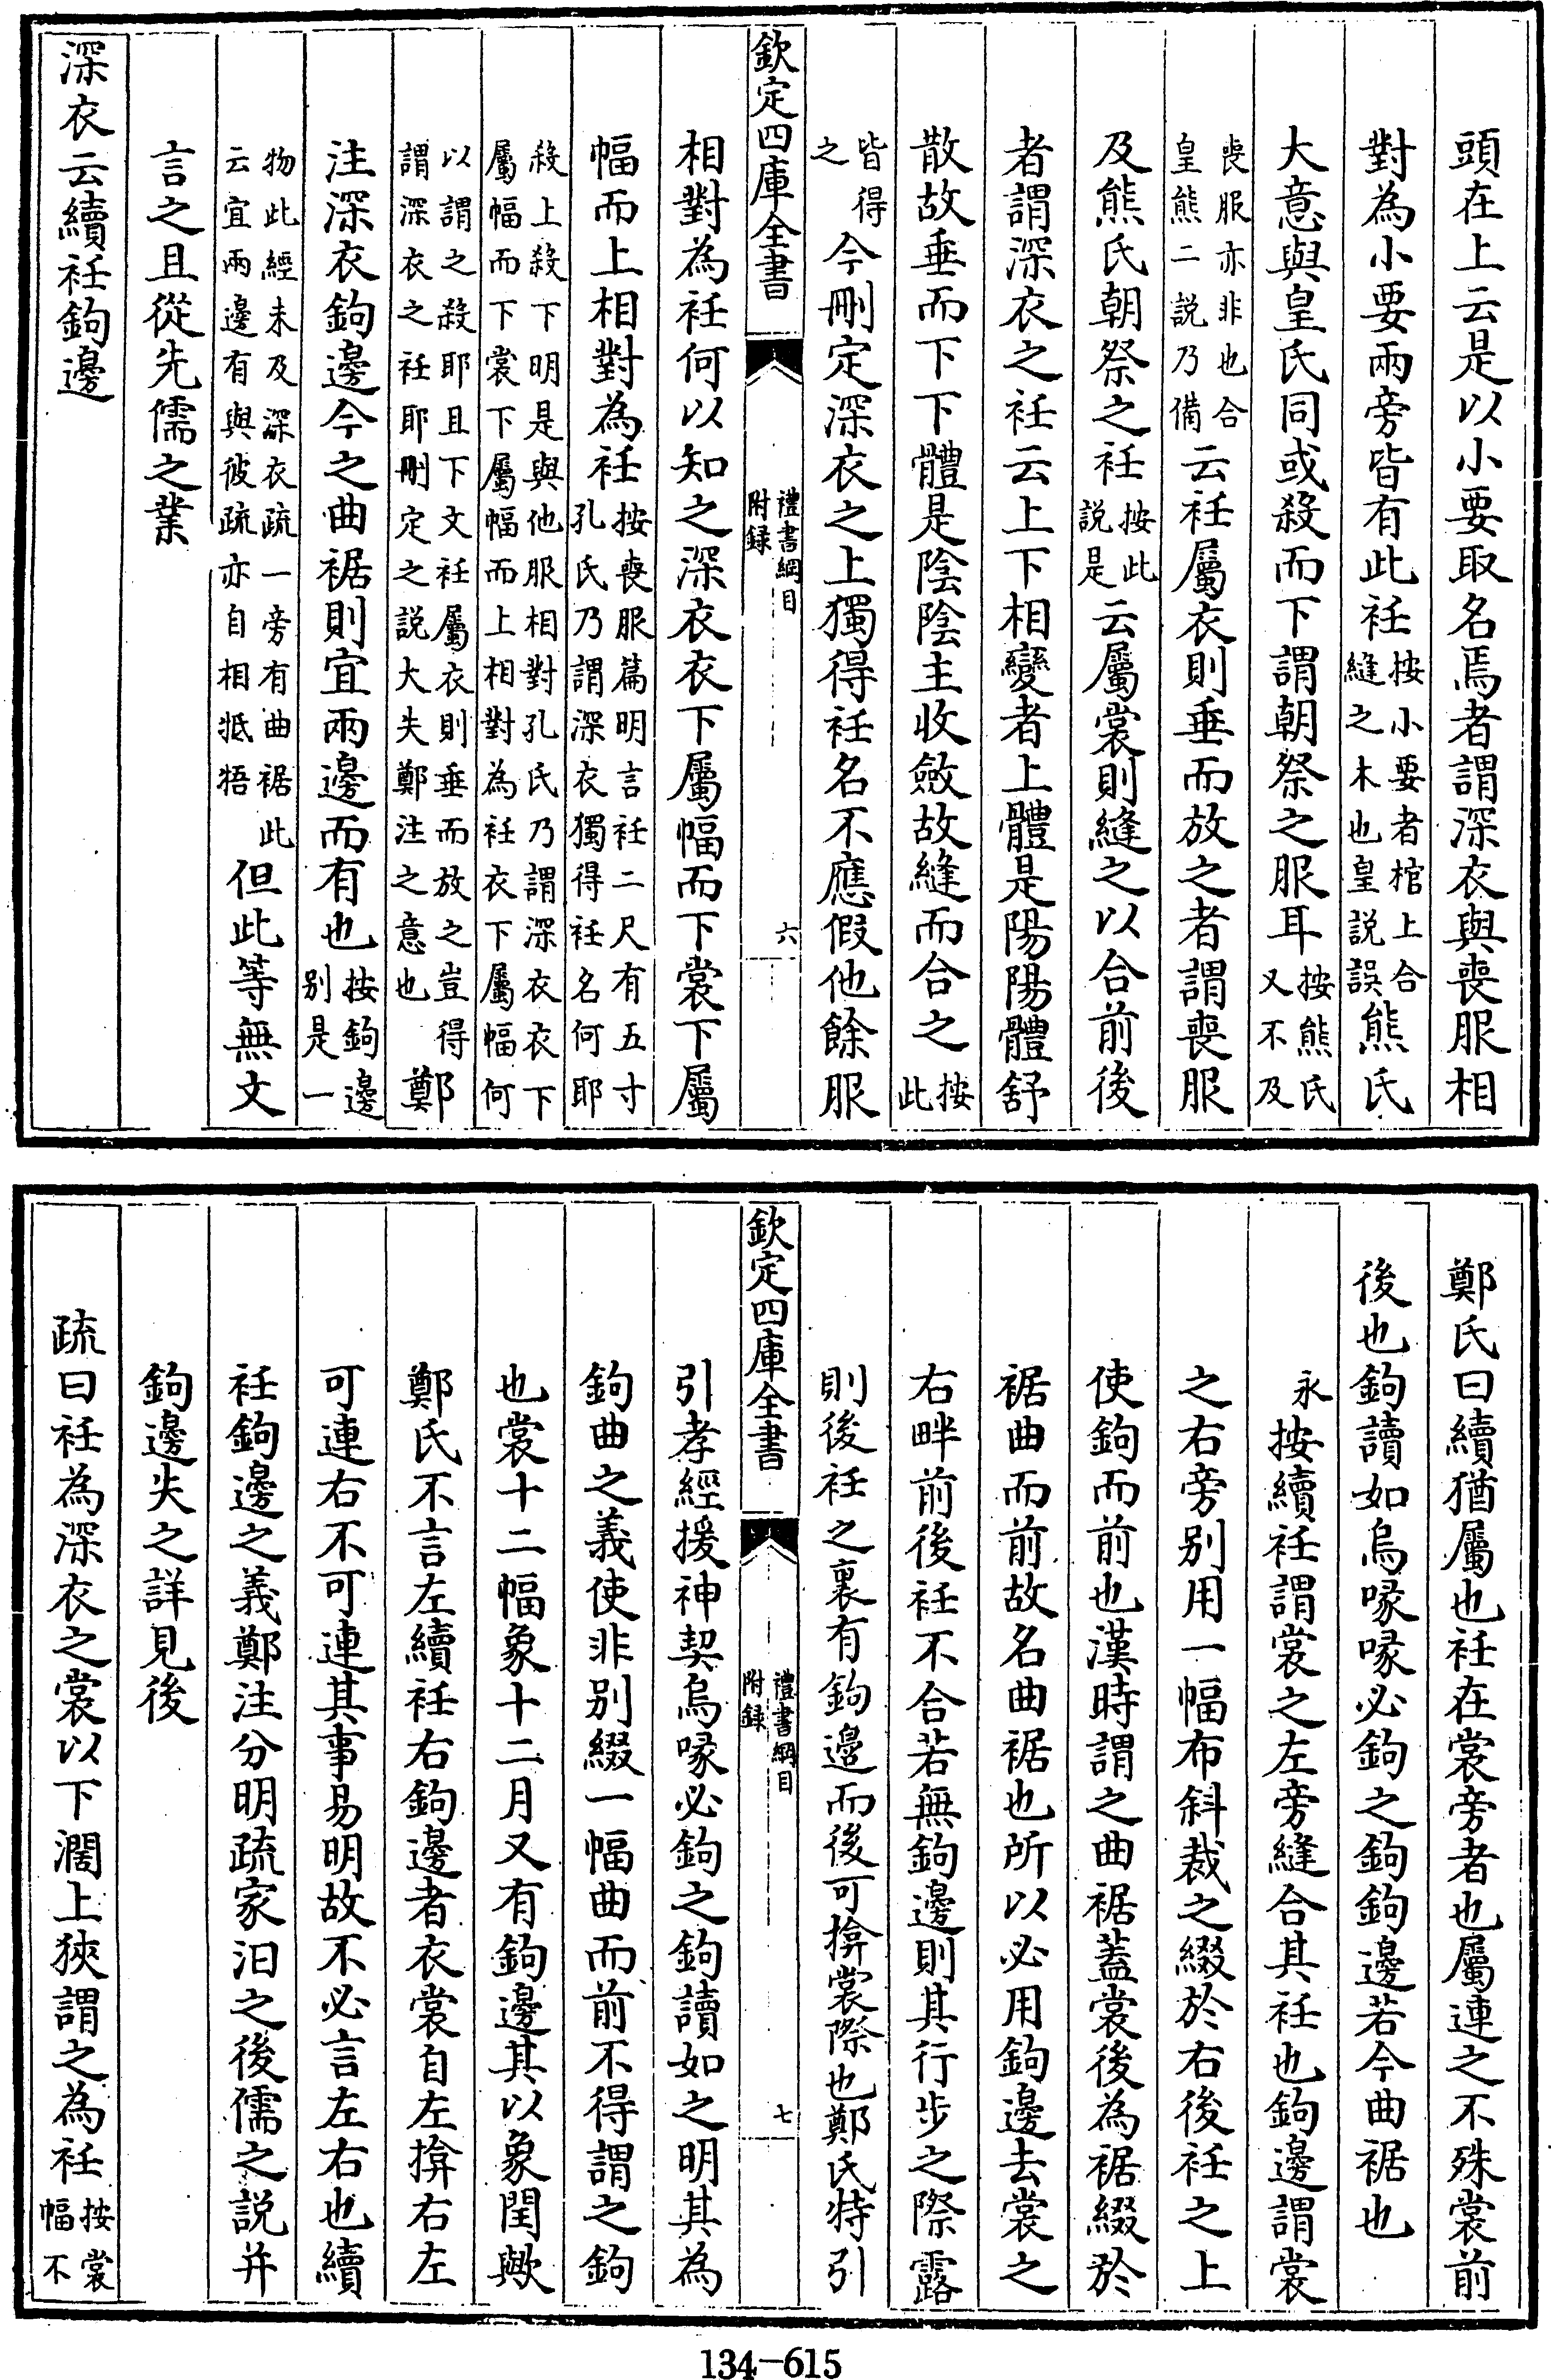 頭在上云是以小要取名焉者謂深衣與喪服相
對為小要兩旁皆有此衽按小要者棺上合縫之木也皇説誤熊氏
大意與皇氏同或殺而下謂朝祭之服耳按熊氏又不及
喪服亦非也合皇熊二説乃備云衽屬衣則垂而放之者謂喪服
及熊氏朝祭之衽按此説是云屬裳則縫之以合前後
者謂深衣之衽云上下相變者上體是陽陽體舒
散故垂而下下體是陰陰主收斂故縫而合之按此
皆得之今刪定深衣之上獨得衽名不應假他餘服
欽定四庫全書
禮書綱目
附録
六
相對為衽何以知之深衣衣下屬幅而下裳下屬
幅而上相對為衽按喪服篇明言衽二尺有五寸孔氏乃謂深衣獨得衽名何耶
殺上殺下明是與他服相對孔氏乃謂深衣衣下屬幅而下裳下屬幅而上相對為衽衣下屬幅何
以謂之殺耶且下文衽屬衣則垂而放之豈得謂深衣之衽耶刪定之説大失鄭注之意也鄭
注深衣鉤邊今之曲裾則宜兩邊而有也按鉤邊别是一
物此經未及深衣疏一旁有曲裾此云宜兩邊有與彼疏亦自相牴牾但此等無文
言之且從先儒之業
深衣云續衽鉤邊
鄭氏曰續猶屬也衽在裳旁者也屬連之不殊裳前
後也鉤讀如烏喙喙必鉤之鉤鉤邊若今曲裾也
永按續衽謂裳之左旁縫合其衽也鉤邊謂裳
之右旁别用一幅布斜裁之綴於右後衽之上
使鉤而前也漢時謂之曲裾蓋裳後為裾綴於
裾曲而前故名曲裾也所以必用鉤邊去裳之
右畔前後衽不合若無鉤邊則其行步之際露
則後衽之裏有鉤邊而後可揜裳際也鄭氏特引
欽定四庫全書
禮書綱目
附録
七
引孝經援神契烏喙必鉤之鉤讀如之明其為
鉤曲之義使非别綴一幅曲而前不得謂之鉤
也裳十二幅象十二月又有鉤邊其以象閏歟
鄭氏不言左續衽右鉤邊者衣裳自左揜右左
可連右不可連其事易明故不必言左右也續
衽鉤邊之義鄭注分明疏家汨之後儒之説并
鉤邊失之詳見後
疏曰衽為深衣之裳以下濶上狹謂之為衽按裳幅不
134-615